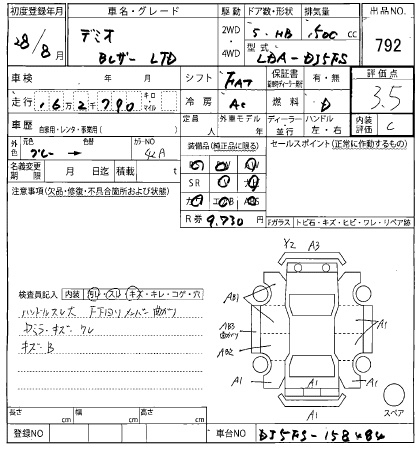 初度登録年月 車名・グレード 駆動 ドア数・形状 排気量 出品NO.
28/8月 デミオ 2WD 5.HB 1500 cc 792
Bレザー LTD 4WD 型式 LDA-DJ5FS
車検 年 月 シフト FAT 保証書 有・無 評価点
走行 16万2千790 キロ マイル 冷房 AC 燃料 D 3.5
車歴 自家用・レンタ・事業用( ) 定員 人 外車モデル 年 ディーラー 並行 ハンドル 左・右 内装評価 C
外色 元色 色替 カラーNO 装備品(純正品に限る) セールスポイント(正常に作動するもの)
グレー → 42A
名義変更期限 月 日迄 積載 t SR
注意事項(欠品・修復・不具合箇所および状態)
R券 9.730 円 Fガラス トビ石・キズ・ヒビ・ワレ・リペア跡
Y2 A3
検査員記入 内装 汚レ・スレ キズ・キレ・コゲ・穴
AB1 A1
ハンドルスレ大 F下回りメンバー曲がり
AB3 曲がり
Dミラーキズ・ワレ
AB2
キズB
A1 A1 A1
A1
スペア
長さ cm 幅 cm 高さ cm
登録NO 車台NO DJ5FS-158484